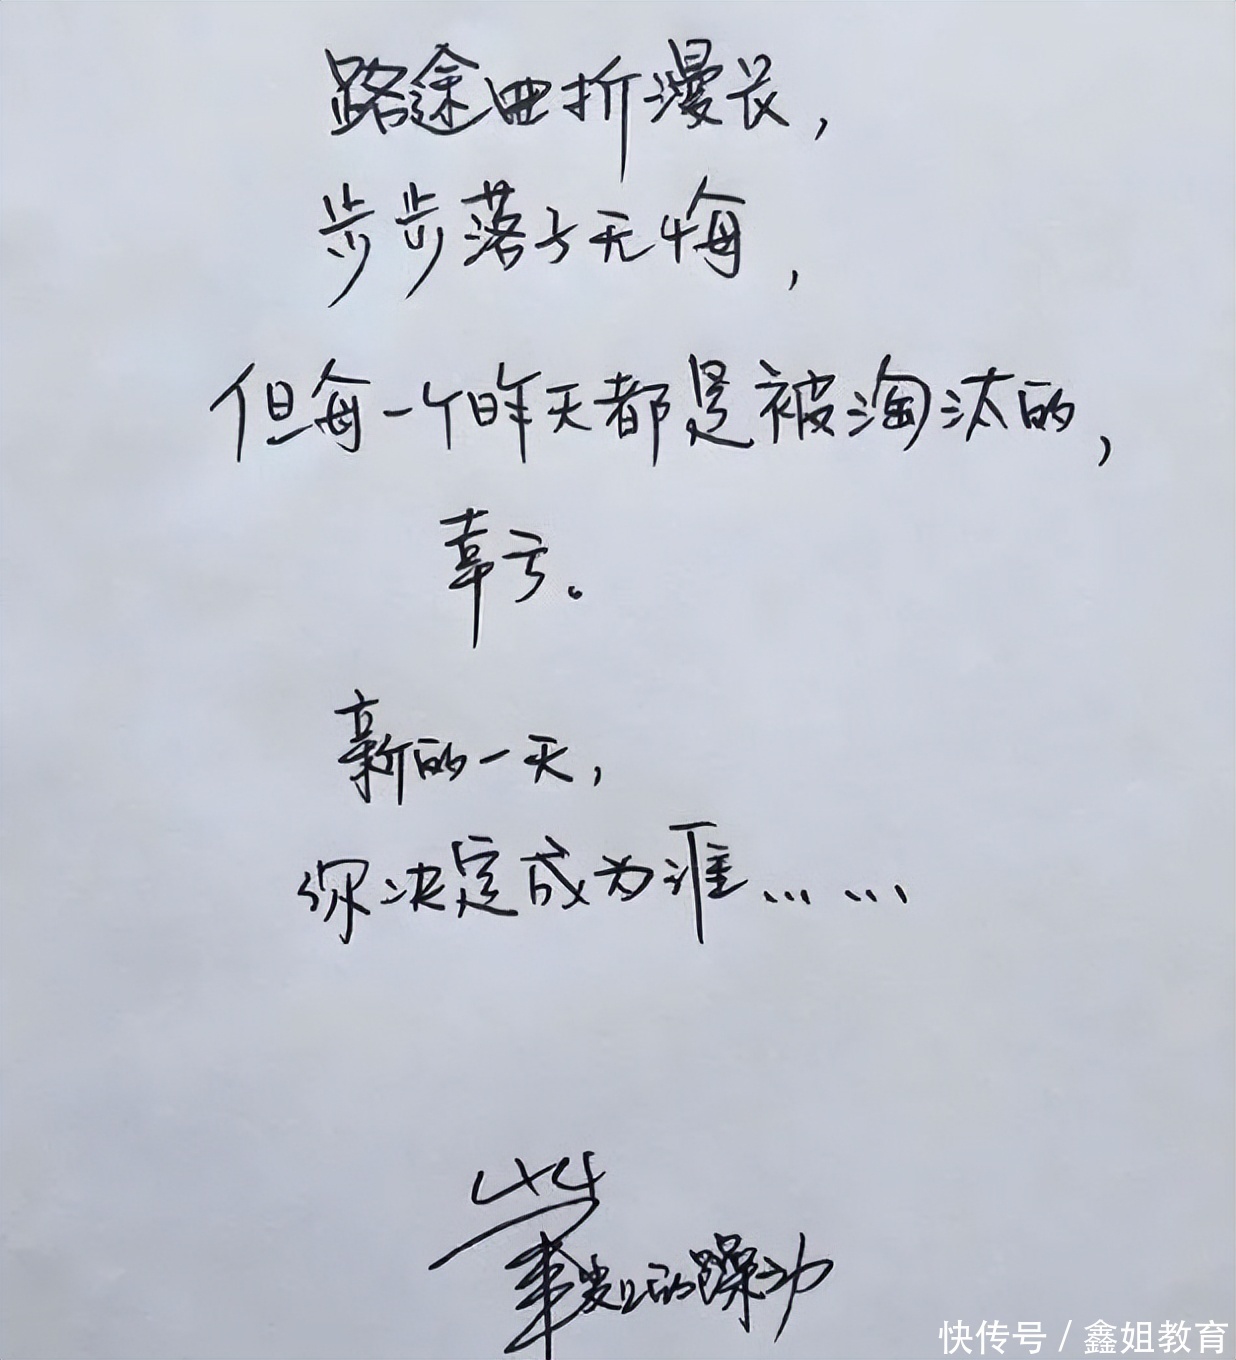 路途曲折漫长，
步步落子无悔，
但每一个昨天都是被淘汰的，
幸亏。
新的一天，
你决定成为谁……
的躁动
快传号 / 鑫姐教育